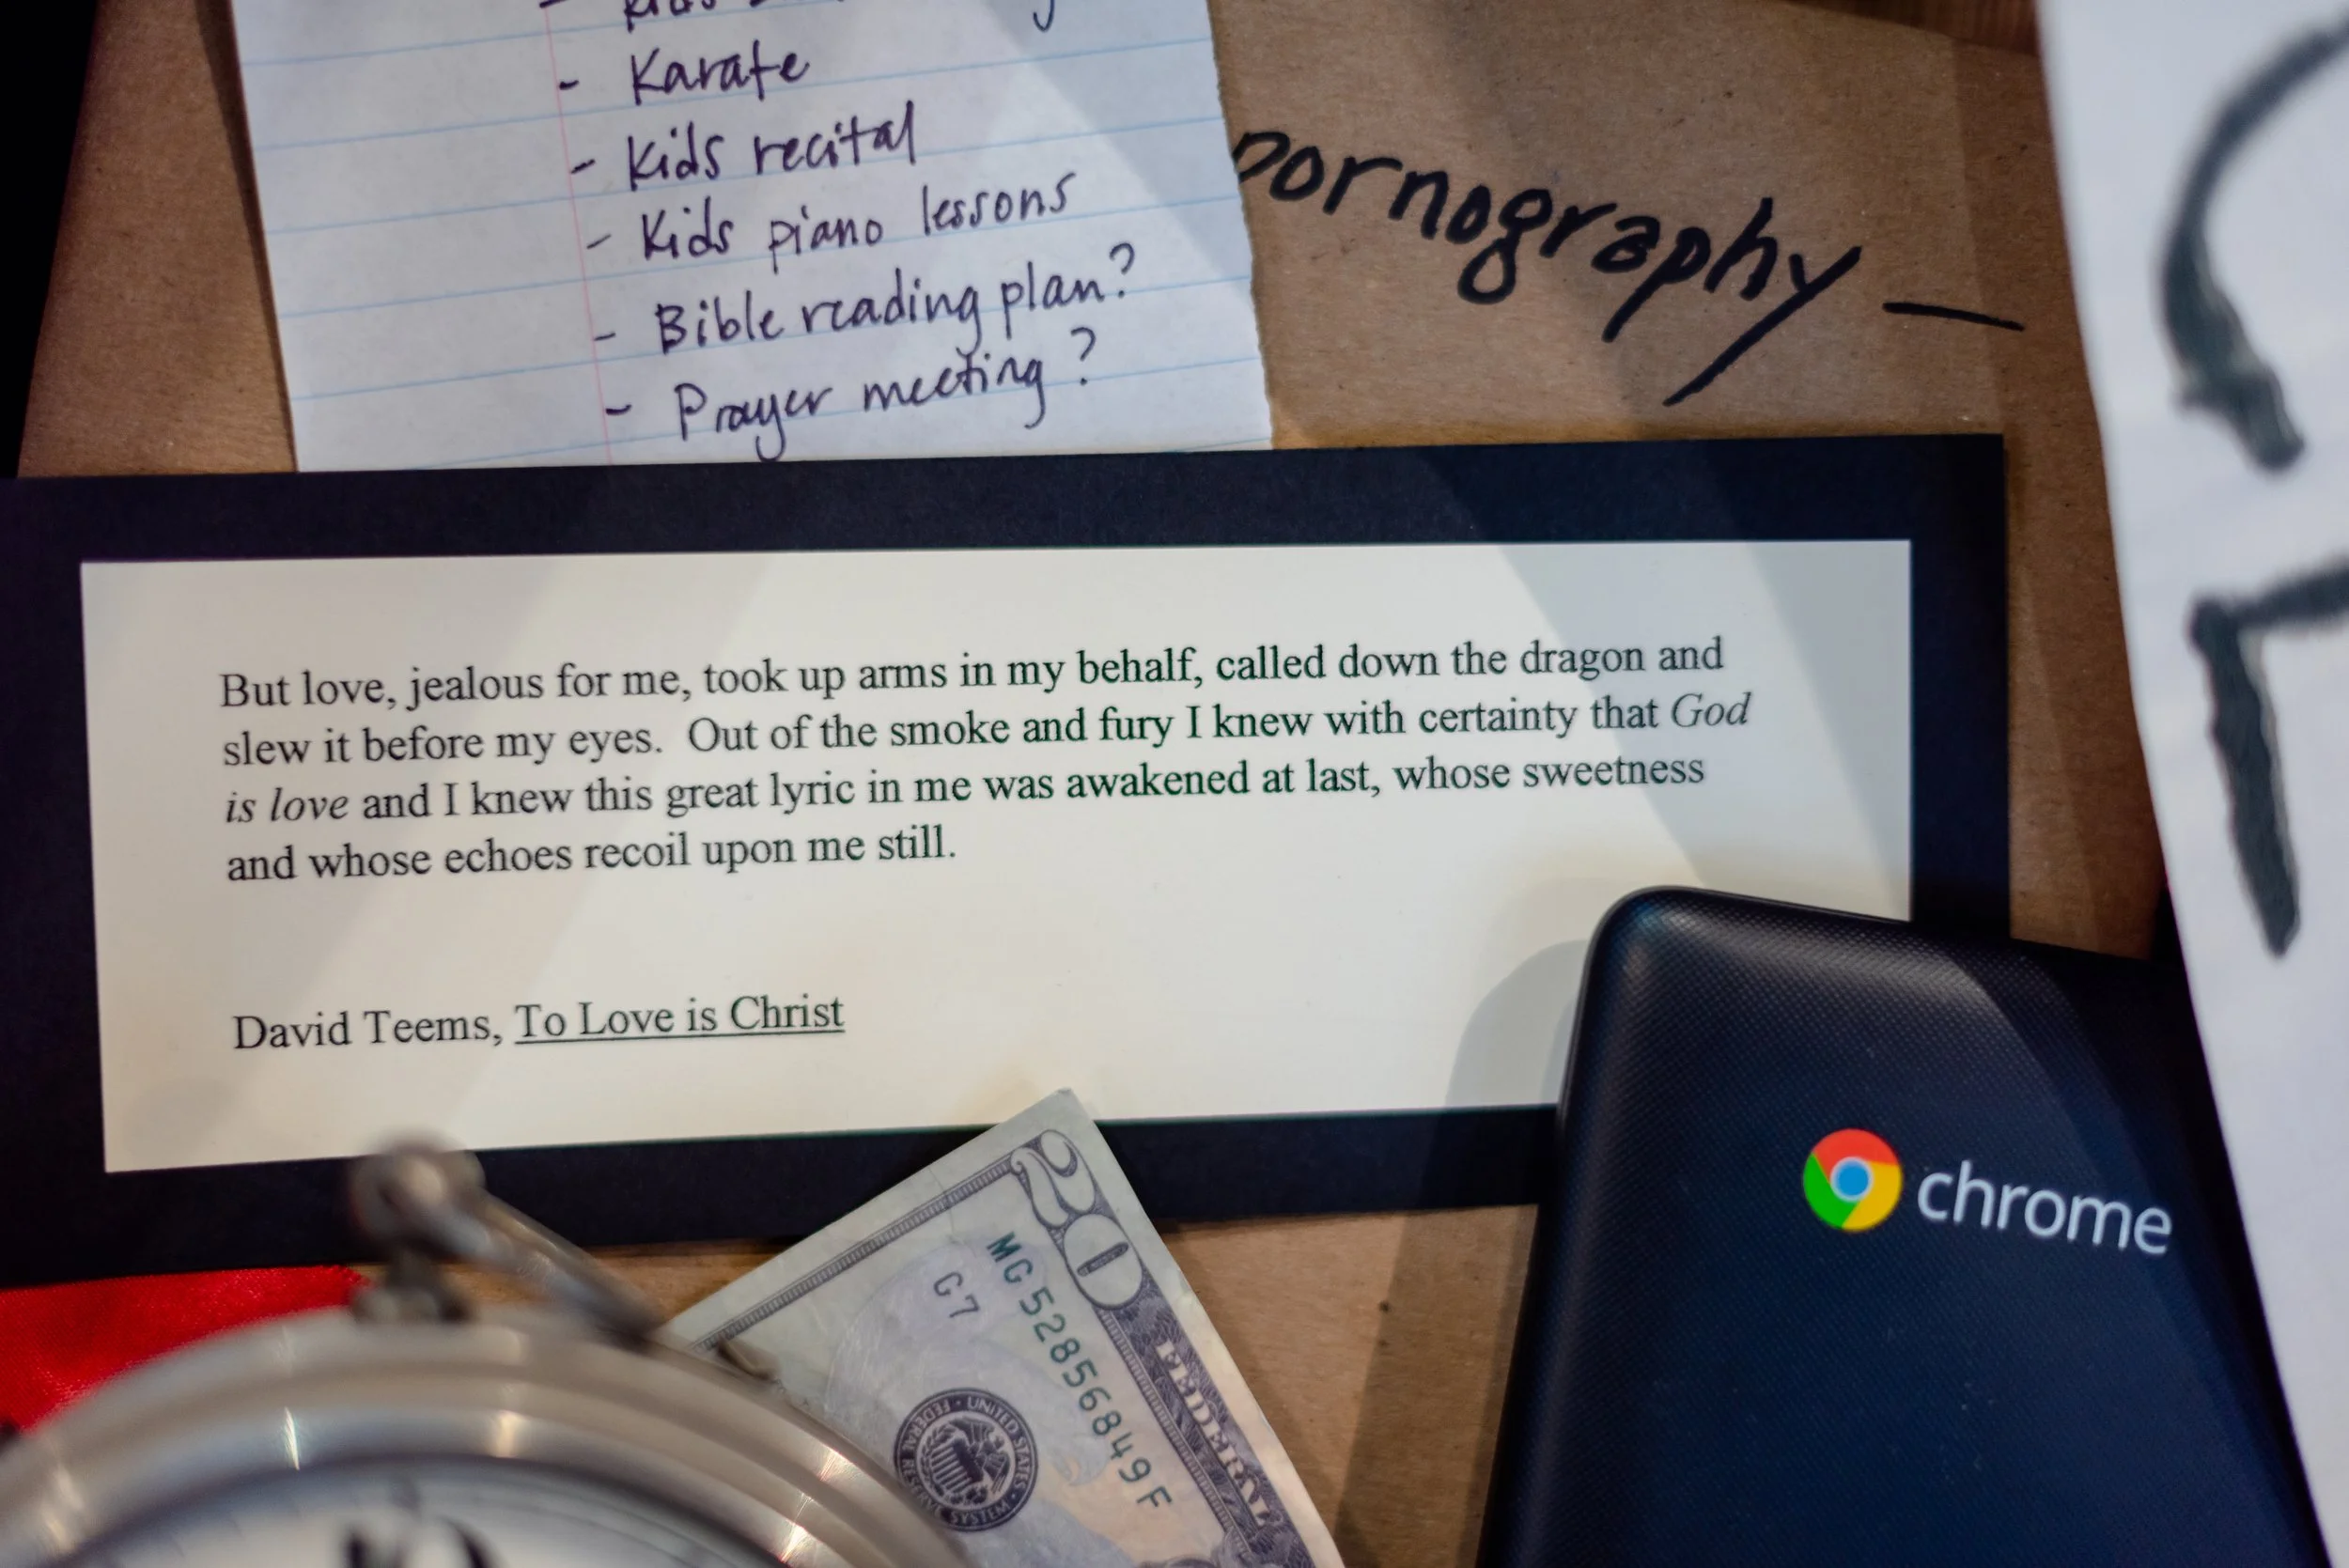 - Karate
- Kids recital
- Kids piano lessons
- Bible reading plan?
- Prayer meeting?
pornography —
But love, jealous for me, took up arms in my behalf, called down the dragon and
slew it before my eyes.  Out of the smoke and fury I knew with certainty that God
is love and I knew this great lyric in me was awakened at last, whose sweetness
and whose echoes recoil upon me still.
David Teems, To Love is Christ
chrome
20
MG52856849F
G7
FEDERAL
UNITED STATES FEDERAL RESERVE SYSTEM